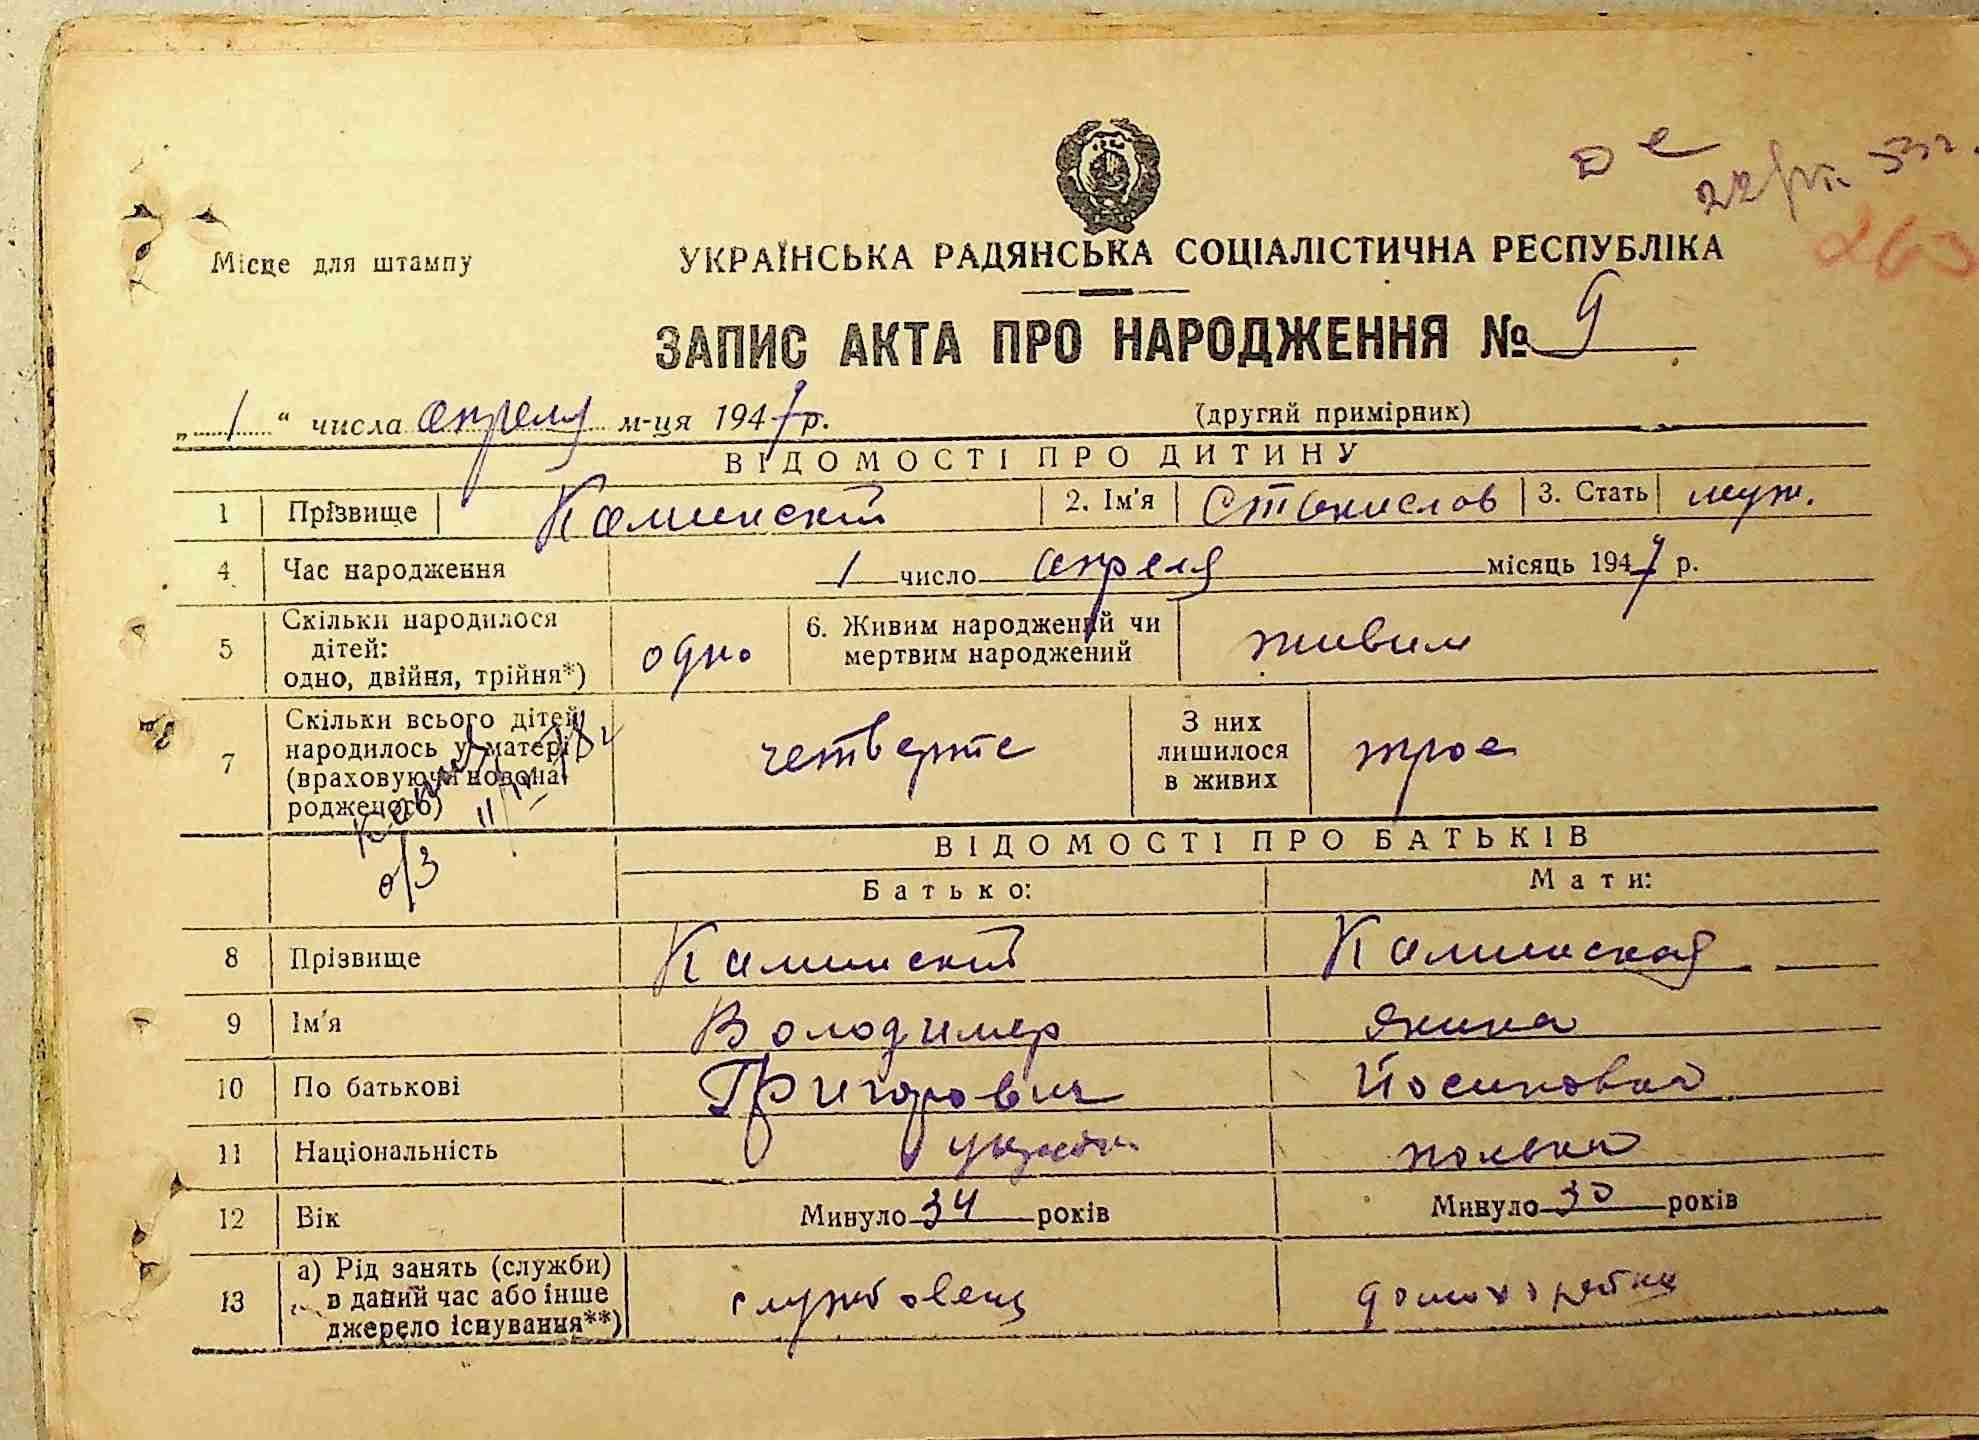 22/VI. 53г.
263
Місце для штампу
УКРАЇНСЬКА РАДЯНСЬКА СОЦІАЛІСТИЧНА РЕСПУБЛІКА
ЗАПИС АКТА ПРО НАРОДЖЕННЯ № 9
„ 1 “ числа апреля м-ця 1947 р. (другий примірник)
ВІДОМОСТІ ПРО ДИТИНУ
1 Прізвище Каминский 2. Ім'я Станислав 3. Стать муж.
4 Час народження 1 число апреля місяць 1947 р.
5 Скільки народилося дітей: одно, двійня, трійня*) одно 6. Живим народжений чи мертвим народжений живим
7 Скільки всього дітей народилось у матері (враховуючи новона родженого) четверте З них лишилося в живих троє
о/з
ВІДОМОСТІ ПРО БАТЬКІВ
Батько: Мати:
8 Прізвище Каминский Каминская
9 Ім'я Володимер Янина
10 По батькові Григорович Йосиповна
11 Національність полька
12 Вік Минуло 34 років Минуло 30 років
13 а) Рід занять (служби) в даний час або інше джерело існування**) службовец домохозяйка